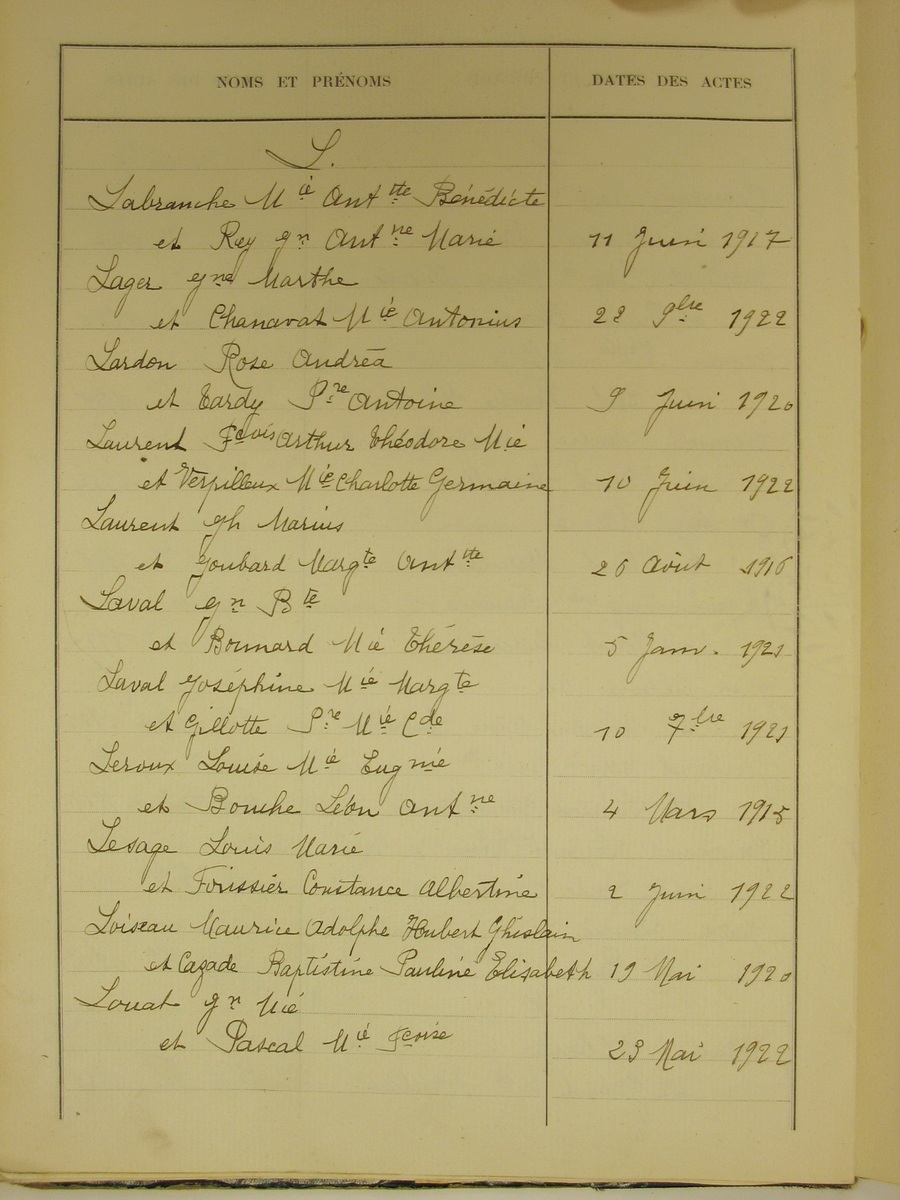 NOMS ET PRÉNOMS DATES DES ACTES
L.
Labranche Mie Anttte Bénédicte
et Rey Jn Antne Marie 11 Juin 1917
Lager Jne Marthe
et Chanavat Mie Antonius 22 9bre 1922
Lardon Rose Andréa
et Tardy Pre Antoine 9 Juin 1920
Laurent Fcois Arthur Théodore Mie
et Verpilleux Mie Charlotte Germaine 10 Juin 1922
Laurent Jh Marius
et Joubard Margte Anttte 26 Août 1916
Laval Jn Bte
et Bonnard Mie Thérèse 5 Janv. 1921
Laval Joséphine Mie Margte
et Gillotte Pre Mie Cde 10 7bre 1921
Leroux Louise Mie Eugnie
et Bouche Léon Antne 4 Mars 1915
Lesage Louis Marie
et Forissier Constance Albertine 2 Juin 1922
Loiseau Maurice Adolphe Hubert Ghislain
et Cazade Baptistine Pauline Elisabeth 19 Mai 1920
Louat Jn Mie
et Pascal Mie Fcoise 23 Mai 1922